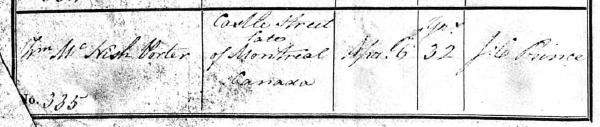 Castle Street
late
Yrs
Wm McNish Porter of Montreal Apr. 6 32 J. C. Prince
Canada
No. 335